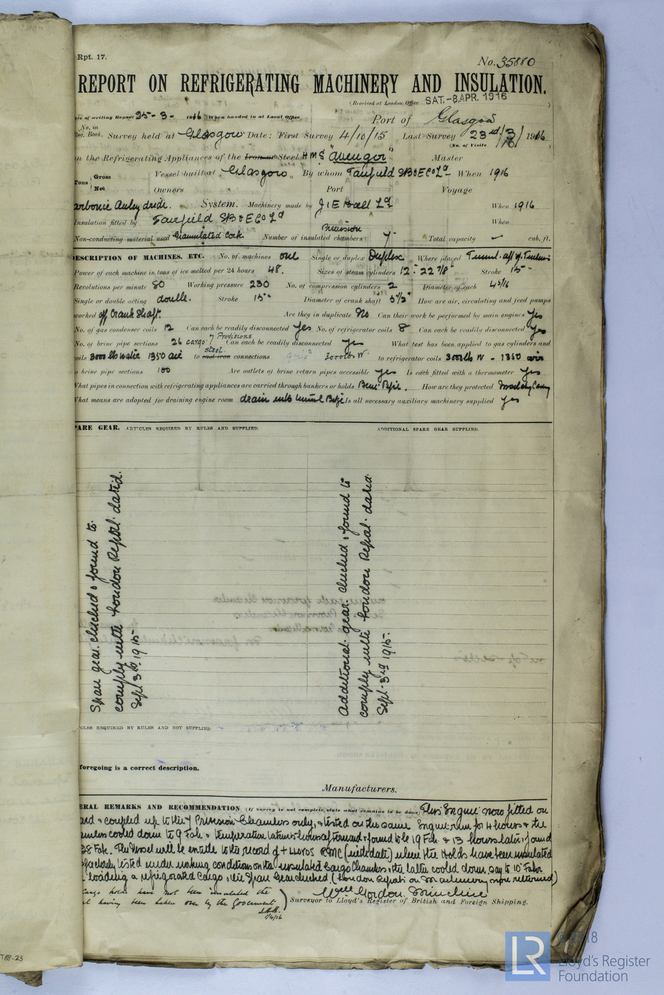 Rpt. 17.
No. 35880
REPORT ON REFRIGERATING MACHINERY AND INSULATION.
(Received at London Office SAT.-8 APR. 1916
Date of writing Report 25-3-1916 When handed in at Local Office
Port of Glasgow
No. in Reg. Book. Survey held at Glasgow Date: First Survey 4/10/15 Last Survey 23rd/3/1916
(No. of Visits
on the Refrigerating Appliances of the Steel H M S "Avenger" Master
Tons Gross Net Vessel built at Glasgow By whom Fairfield SB & E Co Ld When 1916
Owners Port Voyage
Carbonic Anhydride System. Machinery made by J & E Hall Ld When 1916
Insulation fitted by Fairfield SB & E Co Ld When
Non-conducting material used Granulated Cork Number of insulated chambers Provision 7 Total capacity – cub. ft.
DESCRIPTION OF MACHINES, ETC. No. of machines one Single or duplex Duplex Where placed Tunnel aft of
Power of each machine in tons of ice melted per 24 hours 48. Sizes of steam cylinders 12"- 22 7/8" Stroke 15"
Revolutions per minute 80 Working pressure 230 No. of compression cylinders 2 Diameter of each
Single or double acting double. Stroke 15" Diameter of crank shaft 5 1/2" How are air, circulating and feed pumps
worked off Crank Shaft. Are they in duplicate No Can their work be performed by main engines Yes
No. of gas condenser coils 12 Can each be readily disconnected Yes No. of refrigerator coils 8 Can each be readily disconnected Yes
No. of brine pipe sections 26 cargo 7 Provisions Can each be readily disconnected Yes What test has been applied to gas cylinders and
coils 3000 lbs water 1350 air to steel connections 3000 lbs W to refrigerator coils 3000 lbs W - 1350 air
to brine pipe sections 100 Are outlets of brine return pipes accessible Yes Is each fitted with a thermometer Yes
What pipes in connection with refrigerating appliances are carried through bunkers or holds Brine Pipes. How are they protected
What means are adopted for draining engine room drain into tunnel Bilge Is all necessary auxiliary machinery supplied Yes
SPARE GEAR. ARTICLES REQUIRED BY RULES AND SUPPLIED. ADDITIONAL SPARE GEAR SUPPLIED.
Spare gear checked & found to
comply with London Report dated
Sept. 3rd 1915
Additional gear checked & found to
comply with London Report dated
Sept 3rd 1915.
ARTICLES REQUIRED BY RULES AND NOT SUPPLIED.
foregoing is a correct description.
Manufacturers.
GENERAL REMARKS AND RECOMMENDATION (If survey is not complete, state what remains to be done) This Engine now fitted on
board & coupled up to the 7 Provision Chambers only, & tested on the same. Engine run for 4 hours & the
chambers cooled down to 9 Fah. & temperature taken hours afterward & found to be 19 Fah & 13 hours later found
28 Fah. The Vessel will be entitled to the record of + LLOYDS RMC (with date) when the Holds have been insulated
tested under working conditions on the insulated Cargo Chambers & the latter cooled down say to 10 Fahr
loading a refrigerated Cargo & the Spare Gear checked (London Report on Machinery now returned)
Cargo holds have not been insulated the
having been taken over by the Government
1/4/16
Well Gordon
Surveyor to Lloyd's Register of British and Foreign Shipping.
LR
Lloyd's Register
Foundation